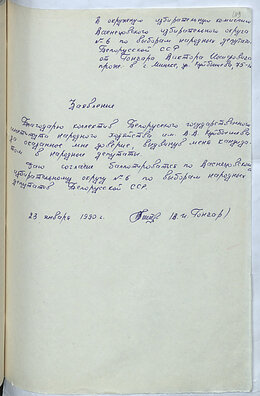 В окружную избирательную комиссию
Васнецовского избирательного округа
№ 6 по выборам народных депутатов
Белорусской ССР
от Гончара Виктора Иосифовича
прож. в г. Минске, ул. Куйбышева,
Заявление
Благодарю коллектив Белорусского государственного
института народного хозяйства им. В.В. Куйбышева
за оказанное мне доверие, выдвинув меня кандида-
том в народные депутаты.
Даю согласие баллотироваться по Васнецовскому
избирательному округу № 6 по выборам народных
депутатов Белорусской ССР.
23 января 1990 г. (В.И. Гончар)